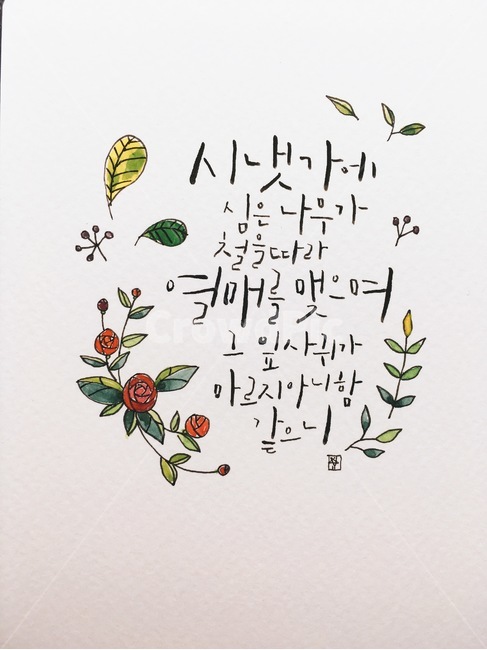 시냇가에
심은 나무가
철을 따라
열매를 맺으며
그 잎사귀가
마르지 아니함
같으니